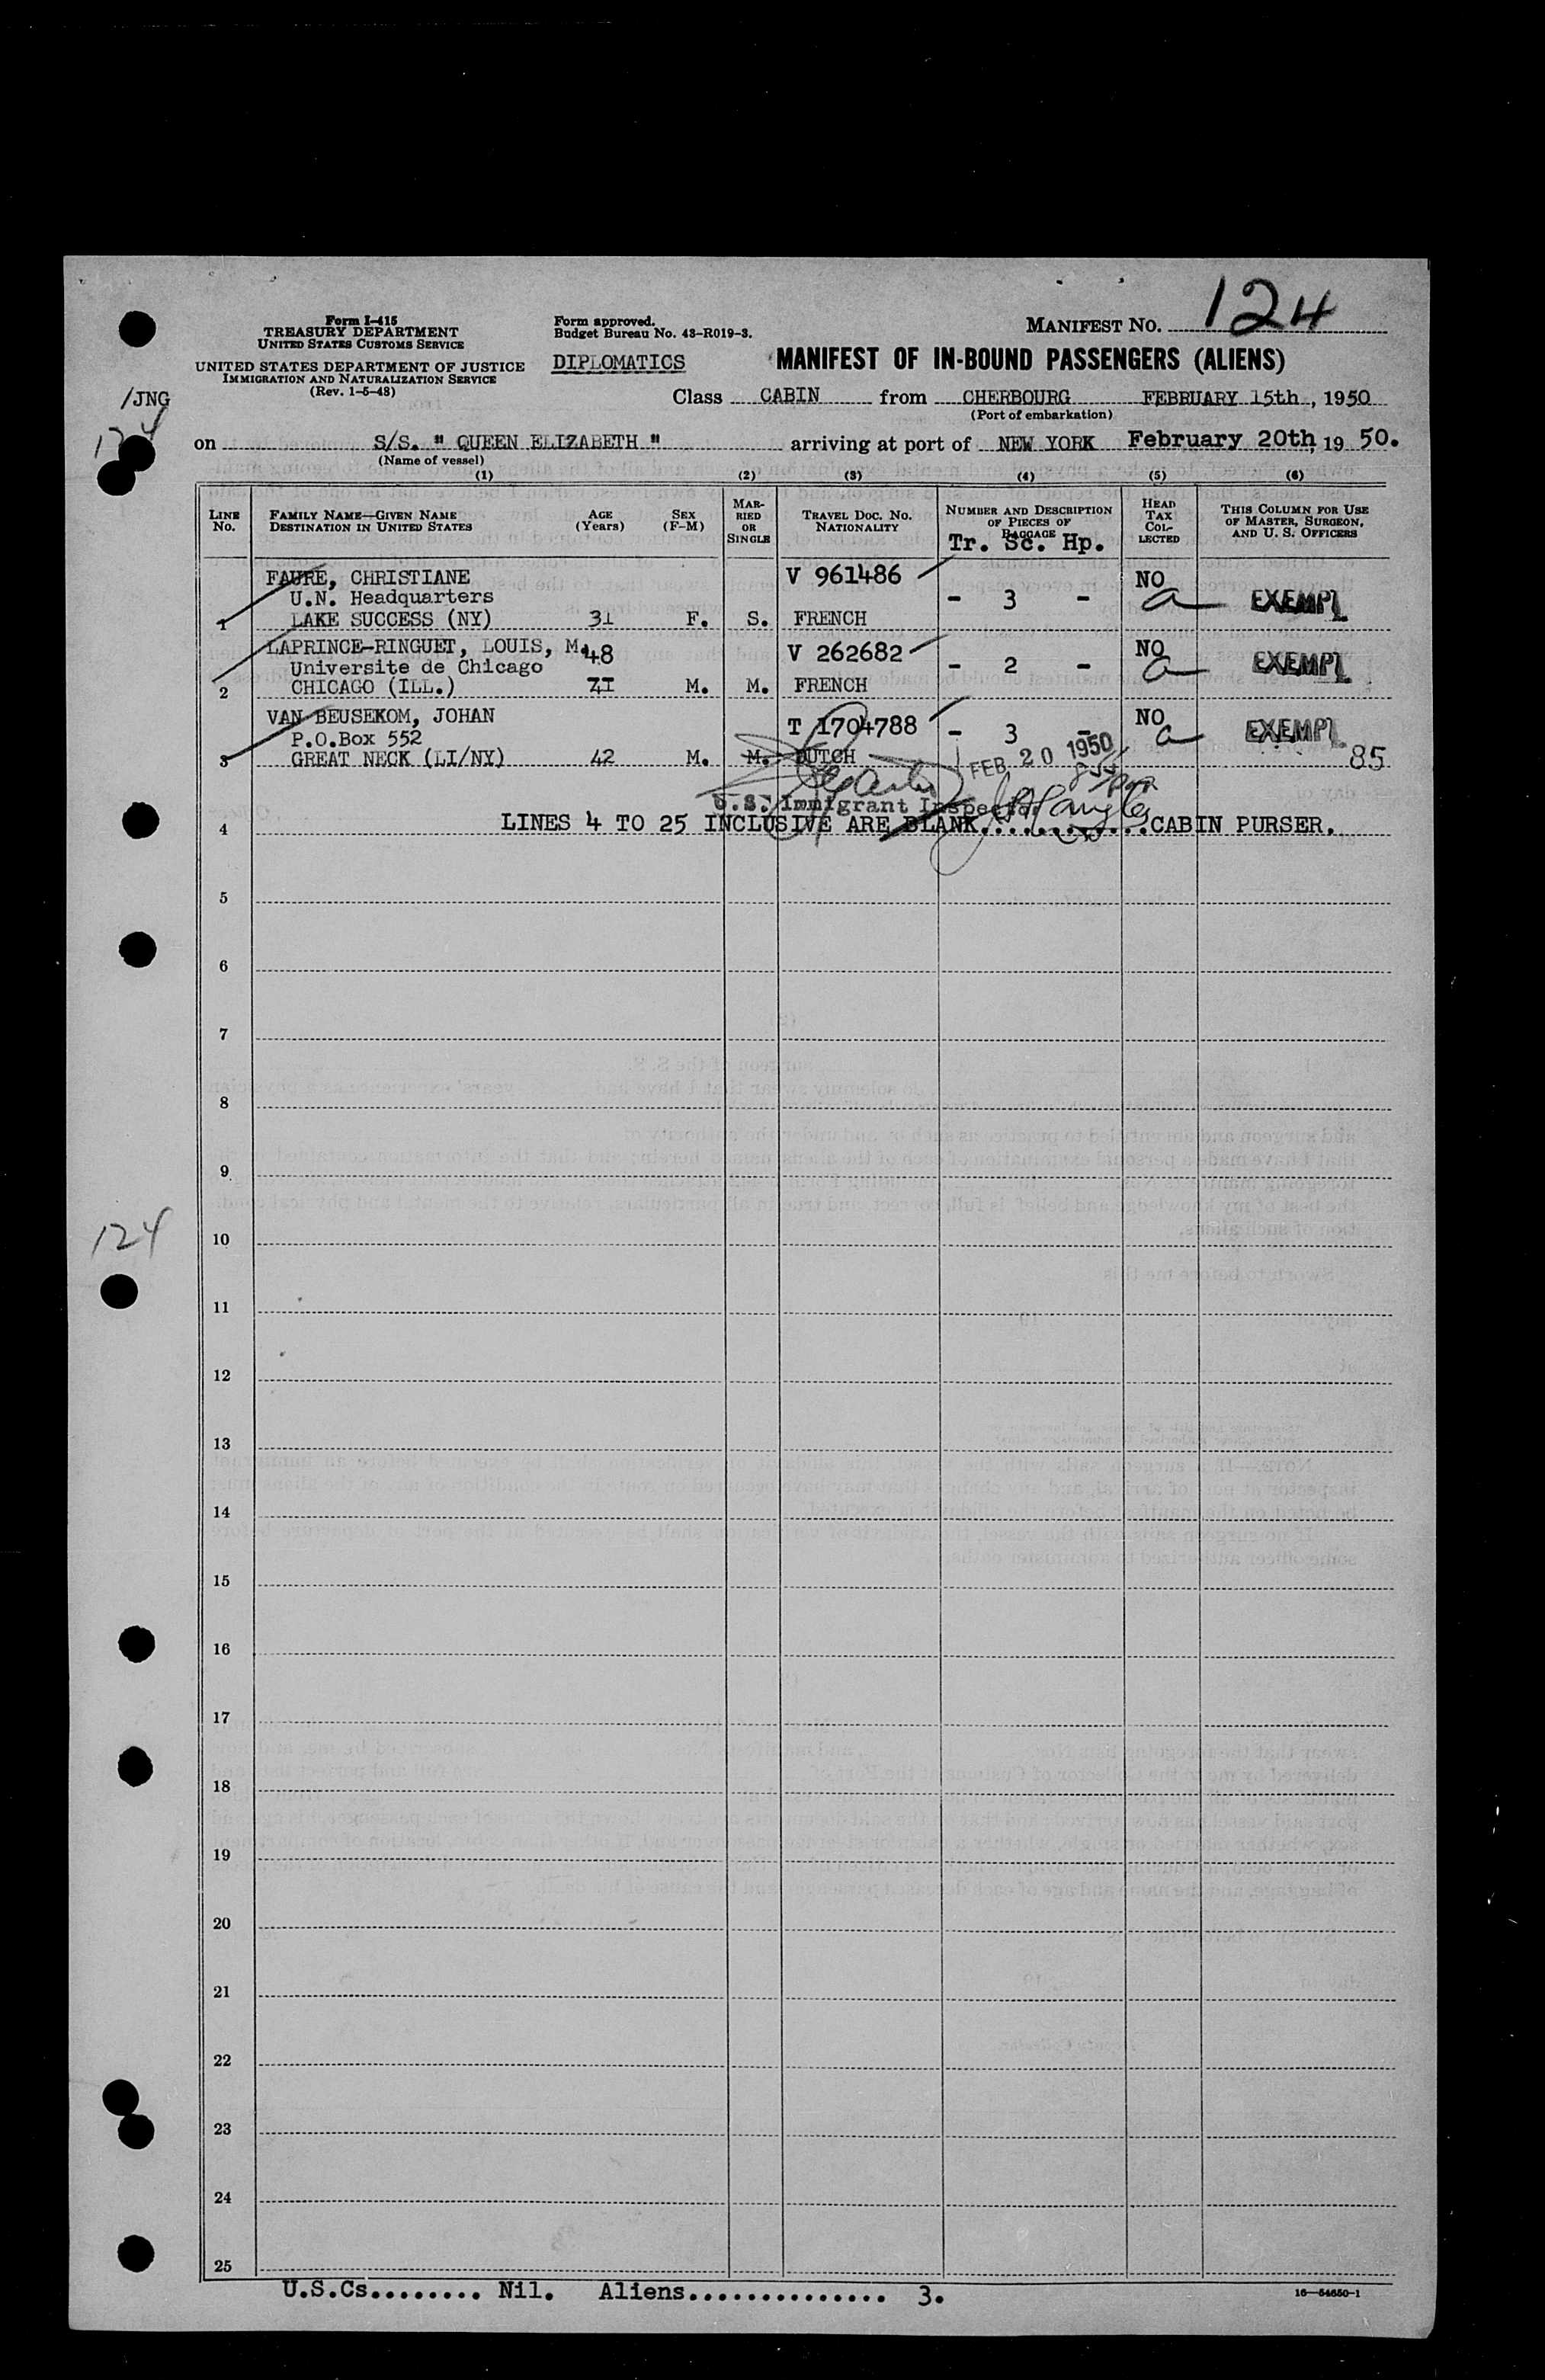 124
Form I-415
TREASURY DEPARTMENT
UNITED STATES CUSTOMS SERVICE
UNITED STATES DEPARTMENT OF JUSTICE
IMMIGRATION AND NATURALIZATION SERVICE
(Rev. 1-5-48)
Form approved.
Budget Bureau No. 43-R019-3.
MANIFEST No.
DIPLOMATICS
MANIFEST OF IN-BOUND PASSENGERS (ALIENS)
/JNG
Class CABIN from CHERBOURG FEBRUARY 15th, 1950
(Port of embarkation)
124
on S/S. " QUEEN ELIZABETH " arriving at port of NEW YORK February 20th, 19 50.
(Name of vessel)
(1) (2) (3) (4) (5) (6)
LINE No.
FAMILY NAME—GIVEN NAME
DESTINATION IN UNITED STATES
AGE (Years)
SEX (F-M)
MARRIED OR SINGLE
TRAVEL DOC. NO.
NATIONALITY
NUMBER AND DESCRIPTION OF PIECES OF BAGGAGE
Tr. Sc. Hp.
HEAD TAX COLLECTED
THIS COLUMN FOR USE OF MASTER, SURGEON, AND U. S. OFFICERS
FAURE, CHRISTIANE V 961486 NO
U.N. Headquarters - 3 - a EXEMPT
1 LAKE SUCCESS (NY) 31 F. S. FRENCH
LAPRINCE-RINGUET, LOUIS, M. 48 V 262682 NO
Universite de Chicago - 2 - a EXEMPT
2 CHICAGO (ILL.) M. M. FRENCH
VAN BEUSEKOM, JOHAN T 1704788 NO
P.O.Box 552 - 3 - a EXEMPT
3 GREAT NECK (LI/NY) 42 M. M. DUTCH 85
FEB 20 1950
U.S. Immigrant Inspector
4 LINES 4 TO 25 INCLUSIVE ARE BLANK............CABIN PURSER.
5
6
7
8
9
10
124
11
12
13
14
15
16
17
18
19
20
21
22
23
24
25
U.S.Cs........ Nil. Aliens.............. 3.
16—54650-1